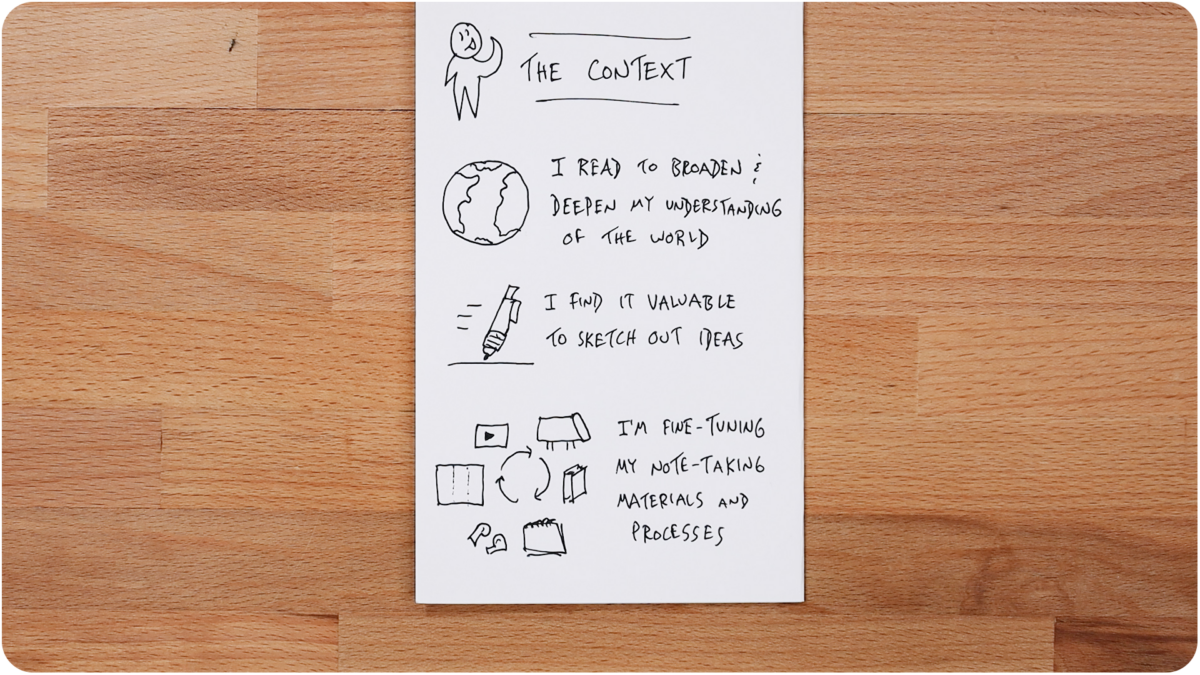 THE CONTEXT
I READ TO BROADEN &
DEEPEN MY UNDERSTANDING
OF THE WORLD
I FIND IT VALUABLE
TO SKETCH OUT IDEAS
I'M FINE-TUNING
MY NOTE-TAKING
MATERIALS AND
PROCESSES